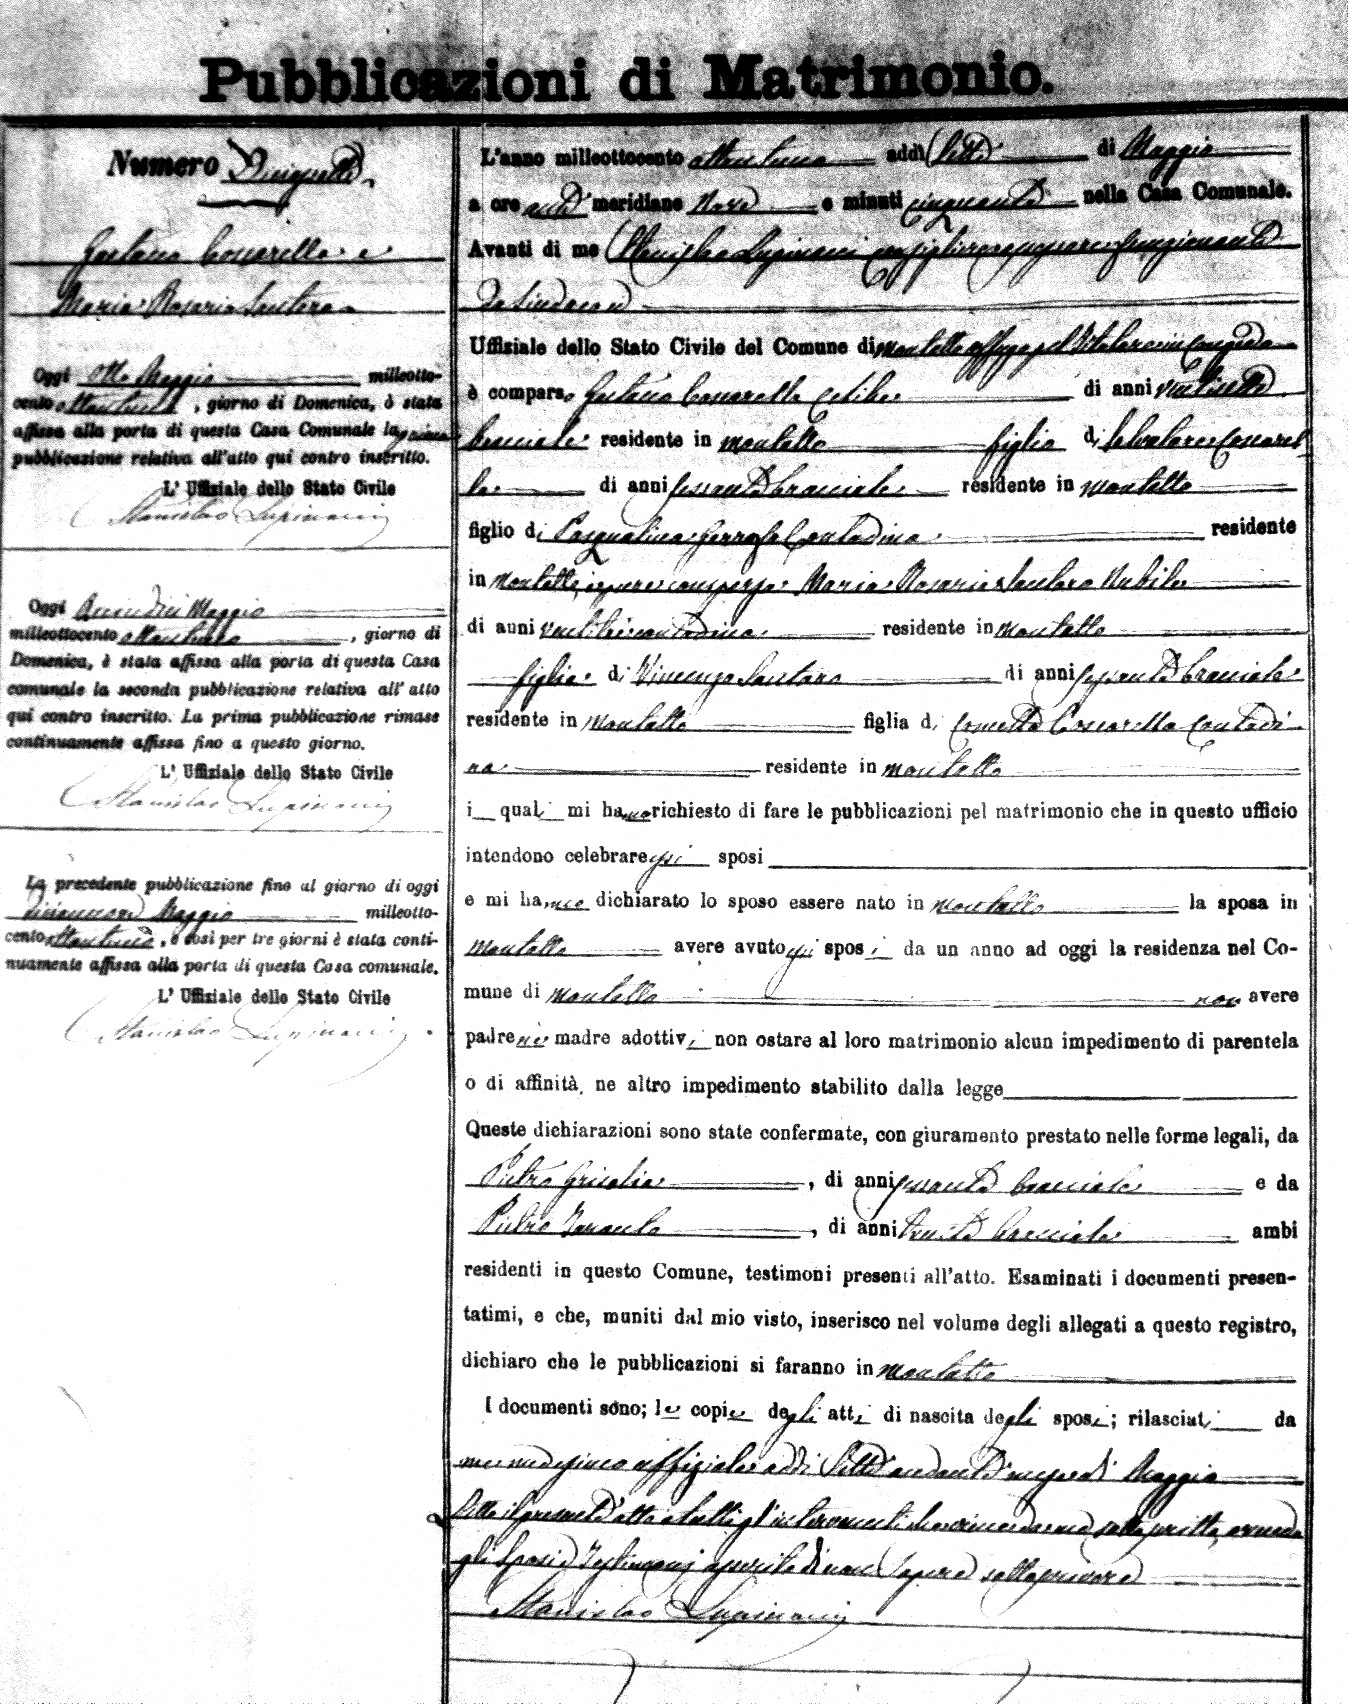 Pubblicazioni di Matrimonio.
Numero
Gaetano Coscarella e
Maria Rosaria Santoro
Oggi otto Maggio milleotto-
cento ottantuno, giorno di Domenica, è stata
affissa alla porta di questa Casa Comunale la prima
pubblicazione relativa all'atto qui contro inscritto.
L' Uffiziale dello Stato Civile
Stanislao Lupinacci
Oggi Quindici Maggio
milleottocento ottantuno, giorno di
Domenica, è stata affissa alla porta di questa Casa
comunale la seconda pubblicazione relativa all' atto
qui contro inscritto. La prima pubblicazione rimase
continuamente affissa fino a questo giorno.
L' Uffiziale dello Stato Civile
Stanislao Lupinacci
La precedente pubblicazione fino al giorno di oggi
Maggio milleotto-
cento ottantuno, e così per tre giorni è stata conti-
nuamente affissa alla porta di questa Casa comunale.
L' Uffiziale dello Stato Civile
Stanislao Lupinacci
L'anno milleottocento ottantuno addì Sette di Maggio
a ore anti meridiane Nove e minuti cinquanta nella Casa Comunale.
Avanti di me Stanislao Lupinacci Consigliere funzionante
da Sindaco
Uffiziale dello Stato Civile del Comune di Montalto Uffugo pel
è comparso Gaetano Coscarella Celibe di anni ventisette
bracciale residente in Montalto figlio di Salvatore Coscarel-
la di anni sessanta bracciale residente in Montalto
figlio di Pasqualina Contadina residente
in Montalto, eppure comparsa Maria Rosaria Santoro Nubile
di anni ventitre contadina residente in Montalto
figlia di Vincenzo Santoro di anni sessanta bracciale
residente in Montalto figlia di Coscarella Contadi-
na residente in Montalto
i quali mi hanno richiesto di fare le pubblicazioni pel matrimonio che in questo ufficio
intendono celebrare essi sposi
e mi hanno dichiarato lo sposo essere nato in Montalto la sposa in
Montalto avere avuto essi sposi da un anno ad oggi la residenza nel Co-
mune di Montalto non avere
padre nè madre adottivi non ostare al loro matrimonio alcun impedimento di parentela
o di affinità, ne altro impedimento stabilito dalla legge
Queste dichiarazioni sono state confermate, con giuramento prestato nelle forme legali, da
Pietro Grisolia, di anni sessanta bracciale e da
Pietro Taranto, di anni trenta bracciale ambi
residenti in questo Comune, testimoni presenti all'atto. Esaminati i documenti presen-
tatimi, e che, muniti dal mio visto, inserisco nel volume degli allegati a questo registro,
dichiaro che le pubblicazioni si faranno in Montalto
I documenti sono; le copie degli atti di nascita degli sposi; rilasciati da
me medesimo uffiziale addì Sette andante mese di Maggio
Letto il presente atto a tutti gl'intervenuti sottoscritto, avendo
gli Sposi e Testimoni asserito di non sapere sottoscrivere
Stanislao Lupinacci